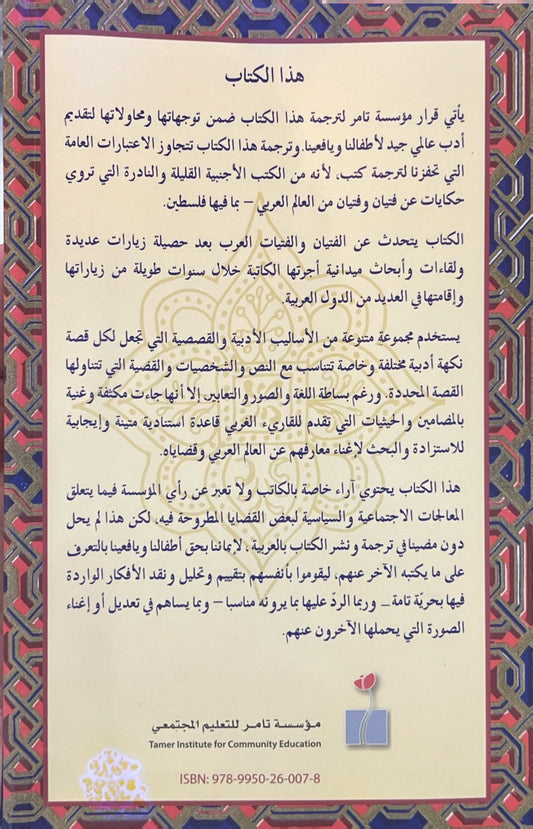 هذا الكتاب
يأتي قرار مؤسسة تامر لترجمة هذا الكتاب ضمن توجهاتها ومحاولاتها لتقديم
أدب عالمي جيد لأطفالنا ويافعينا. وترجمة هذا الكتاب تتجاوز الاعتبارات العامة
التي تحفزنا لترجمة كتب، لأنه من الكتب الأجنبية القليلة والنادرة التي تروي
حكايات عن فتيان وفتيان من العالم العربي – بما فيها فلسطين.
الكتاب يتحدث عن الفتيان والفتيات العرب بعد حصيلة زيارات عديدة
ولقاءات وأبحاث ميدانية أجرتها الكاتبة خلال سنوات طويلة من زياراتها
وإقامتها في العديد من الدول العربية.
يستخدم مجموعة متنوعة من الأساليب الأدبية والقصصية التي تجعل لكل قصة
نكهة أدبية مختلفة وخاصة تتناسب مع النص والشخصيات والقضية التي تتناولها
القصة المحددة. ورغم بساطة اللغة والصور والتعابير، إلا أنها جاءت مكثفة وغنية
بالمضامين والحيثيات التي تقدم للقاريء الغربي قاعدة استنادية متينة وإيجابية
للاستزادة والبحث لإغناء معارفهم عن العالم العربي وقضاياه.
هذا الكتاب يحتوي آراء خاصة بالكاتب ولا تعبر عن رأي المؤسسة فيما يتعلق
المعالجات الاجتماعية والسياسية لبعض القضايا المطروحة فيه، لكن هذا لم يحل
دون مضينا في ترجمة ونشر الكتاب بالعربية، لإيماننا بحق أطفالنا ويافعينا بالتعرف
على ما يكتبه الآخر عنهم، ليقوموا بأنفسهم بتقييم وتحليل ونقد الأفكار الواردة
فيها بحريّة تامة – وربما الردّ عليها بما يرونه مناسبا – وبما يساهم في تعديل أو إغناء
الصورة التي يحملها الآخرون عنهم.
مؤسسة تامر للتعليم المجتمعي
Tamer Institute for Community Education
ISBN: 978-9950-26-007-8